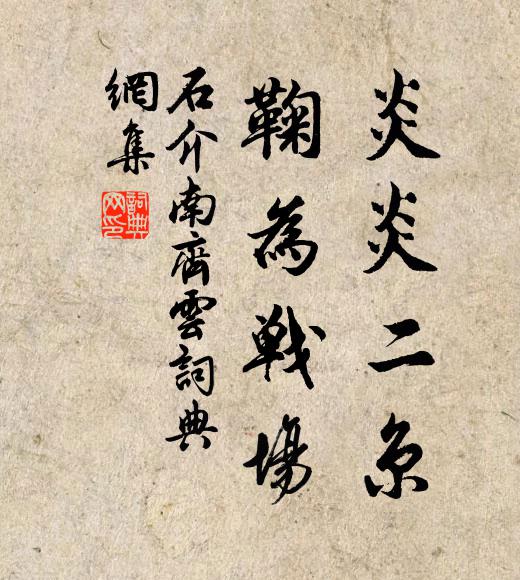 炎炎二京
鞠為戰場
石介南齊雲詞典
網集
詞典
网印